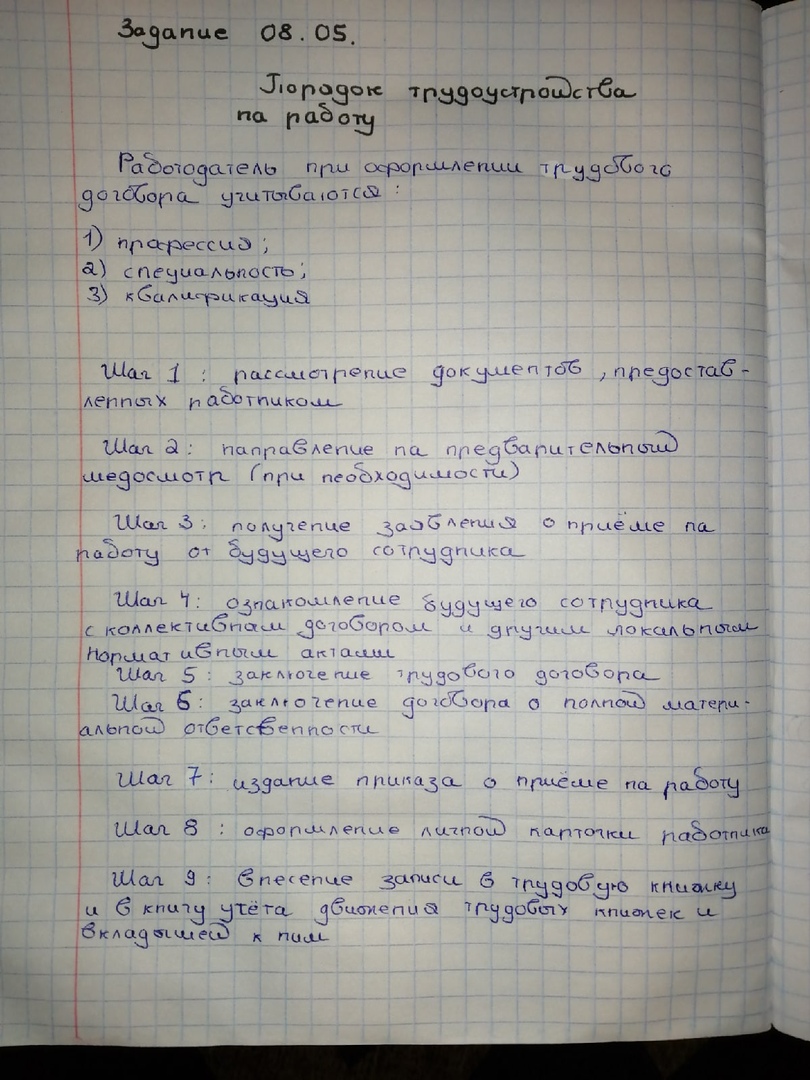 Задание 08.05.
Порядок трудоустройства
на работу
Работодатель при оформлении трудового
договора учитываются:
1) профессия;
2) специальность;
3) квалификация
Шаг 1: рассмотрение документов, предостав-
ленных работником
Шаг 2: направление на предварительный
медосмотр (при необходимости)
Шаг 3: получение заявления о приёме на
работу от будущего сотрудника
Шаг 4: ознакомление будущего сотрудника
с коллективным договором и другим локальным
нормативным актами
Шаг 5: заключение трудового договора
Шаг 6: заключение договора о полной матери-
альной ответсвенности
Шаг 7: издание приказа о приёме на работу
Шаг 8: оформление личной карточки работника
Шаг 9: внесение записи в трудовую книжку
и в книгу учёта движения трудовых книжек и
вкладышей к ним